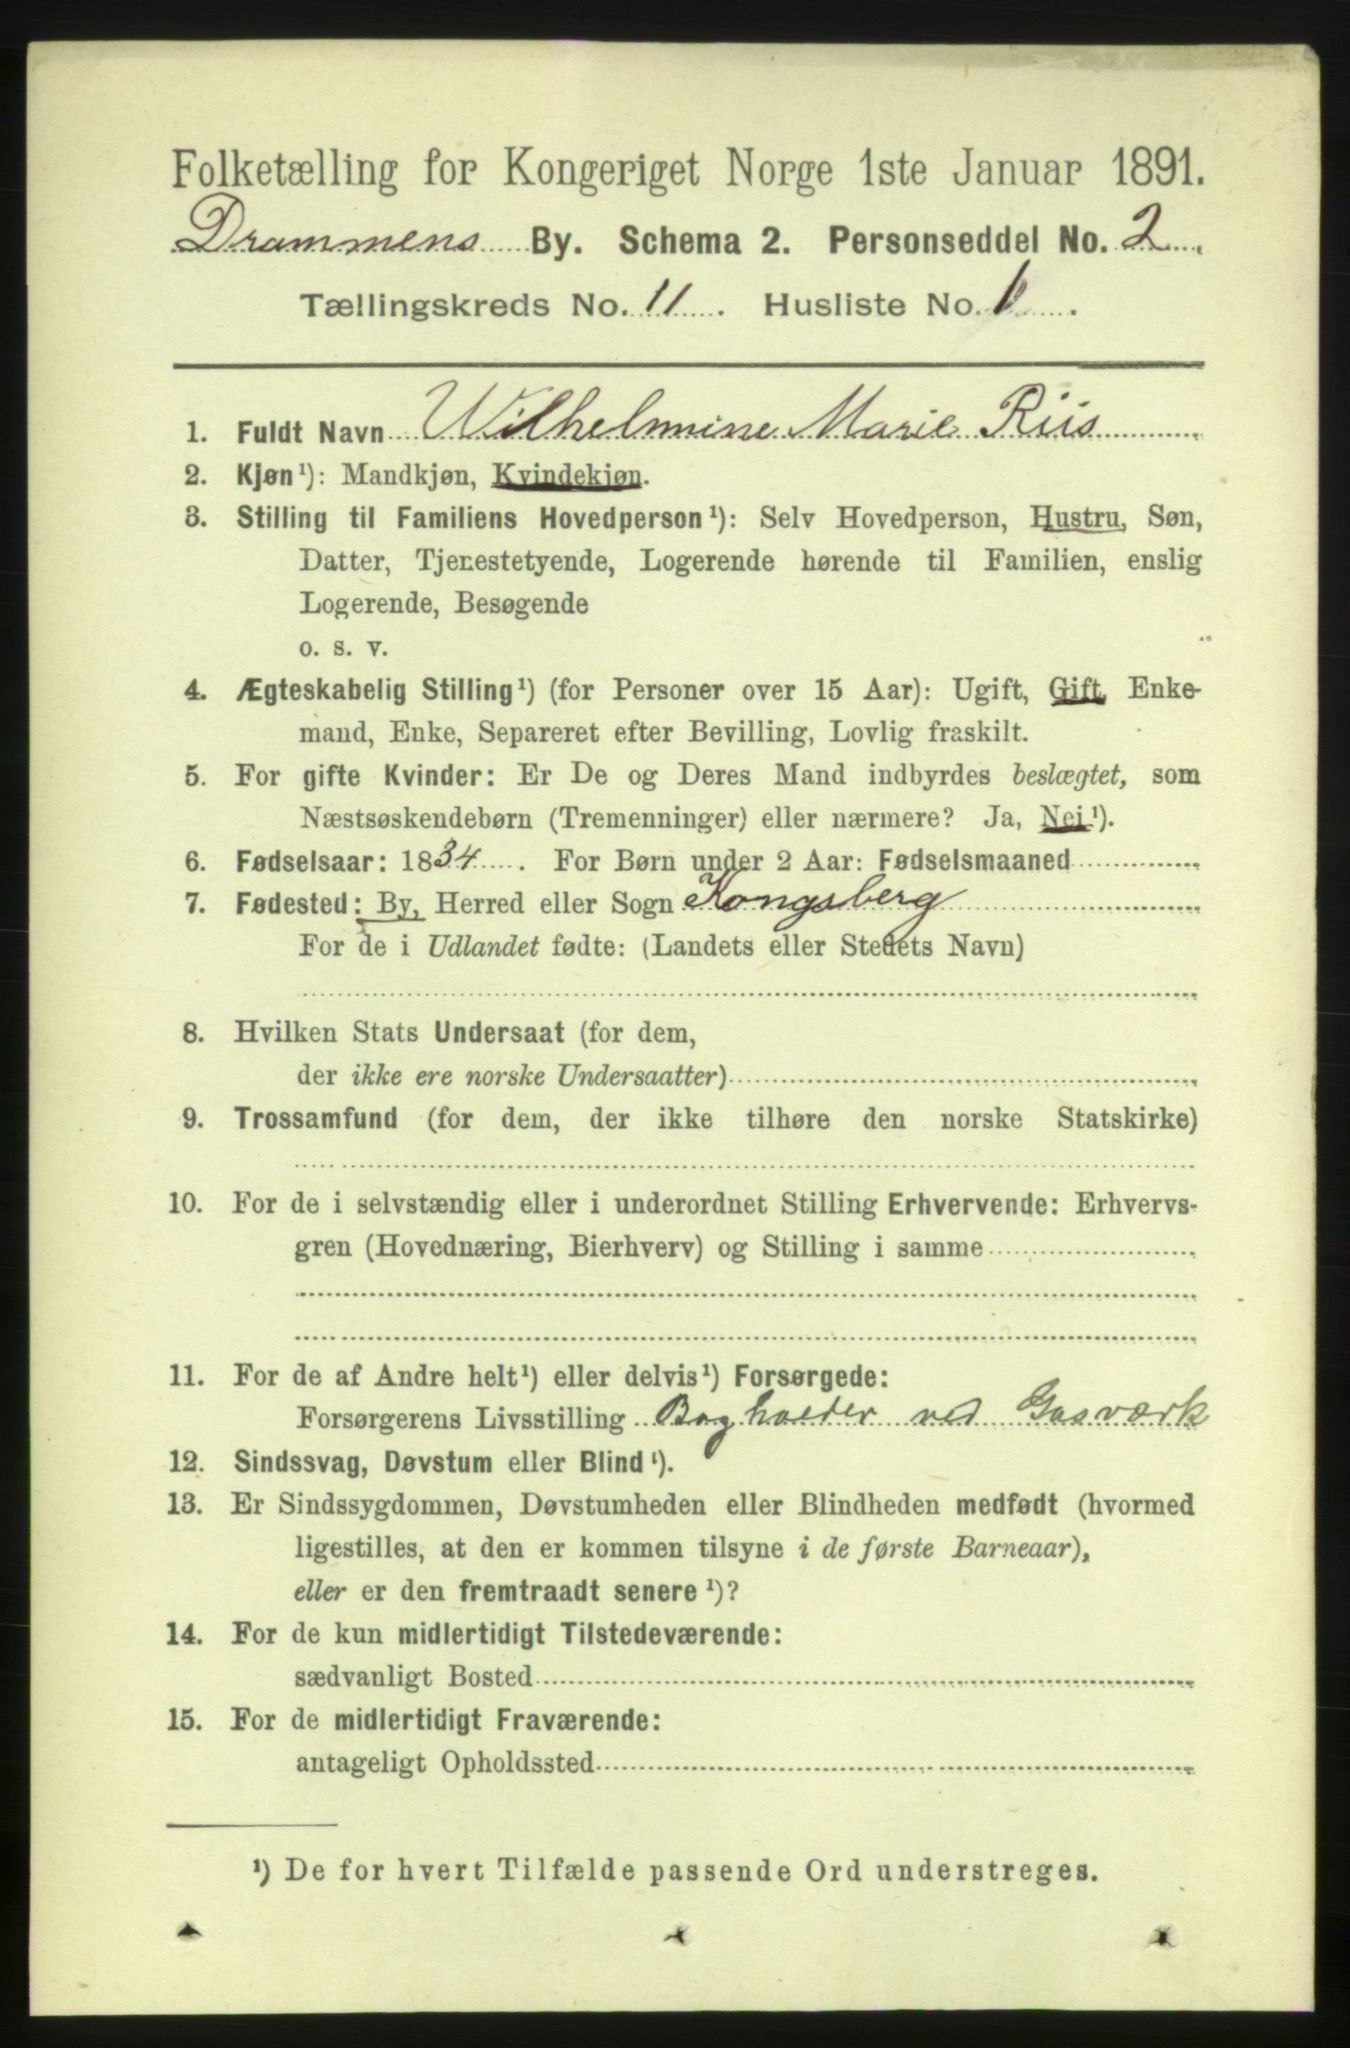 Folketælling for Kongeriget Norge 1ste Januar 1891.
Drammens By. Schema 2. Personseddel No. 2
Tællingskreds No. 11. Husliste No. 1.
1. Fuldt Navn Wilhelmine Marie Riis
2. Kjøn¹): Mandkjøn, Kvindekjøn.
3. Stilling til Familiens Hovedperson¹): Selv Hovedperson, Hustru, Søn,
Datter, Tjenestetyende, Logerende hørende til Familien, enslig
Logerende, Besøgende
o. s. v.
4. Ægteskabelig Stilling¹) (for Personer over 15 Aar): Ugift, Gift, Enke-
mand, Enke, Separeret efter Bevilling, Lovlig fraskilt.
5. For gifte Kvinder: Er De og Deres Mand indbyrdes beslægtet, som
Næstsøskendebørn (Tremenninger) eller nærmere? Ja, Nei¹).
6. Fødselsaar: 1834. For Børn under 2 Aar: Fødselsmaaned
7. Fødested: By, Herred eller Sogn Kongsberg
For de i Udlandet fødte: (Landets eller Stedets Navn)
8. Hvilken Stats Undersaat (for dem,
der ikke ere norske Undersaatter)
9. Trossamfund (for dem, der ikke tilhøre den norske Statskirke)
10. For de i selvstændig eller i underordnet Stilling Erhvervende: Erhvervs-
gren (Hovednæring, Bierhverv) og Stilling i samme
11. For de af Andre helt¹) eller delvis¹) Forsørgede:
Forsørgerens Livsstilling Bogholder ved Gasværk
12. Sindssvag, Døvstum eller Blind¹).
13. Er Sindssygdommen, Døvstumheden eller Blindheden medfødt (hvormed
ligestilles, at den er kommen tilsyne i de første Barneaar),
eller er den fremtraadt senere¹)?
14. For de kun midlertidigt Tilstedeværende:
sædvanligt Bosted
15. For de midlertidigt Fraværende:
antageligt Opholdssted
¹) De for hvert Tilfælde passende Ord understreges.